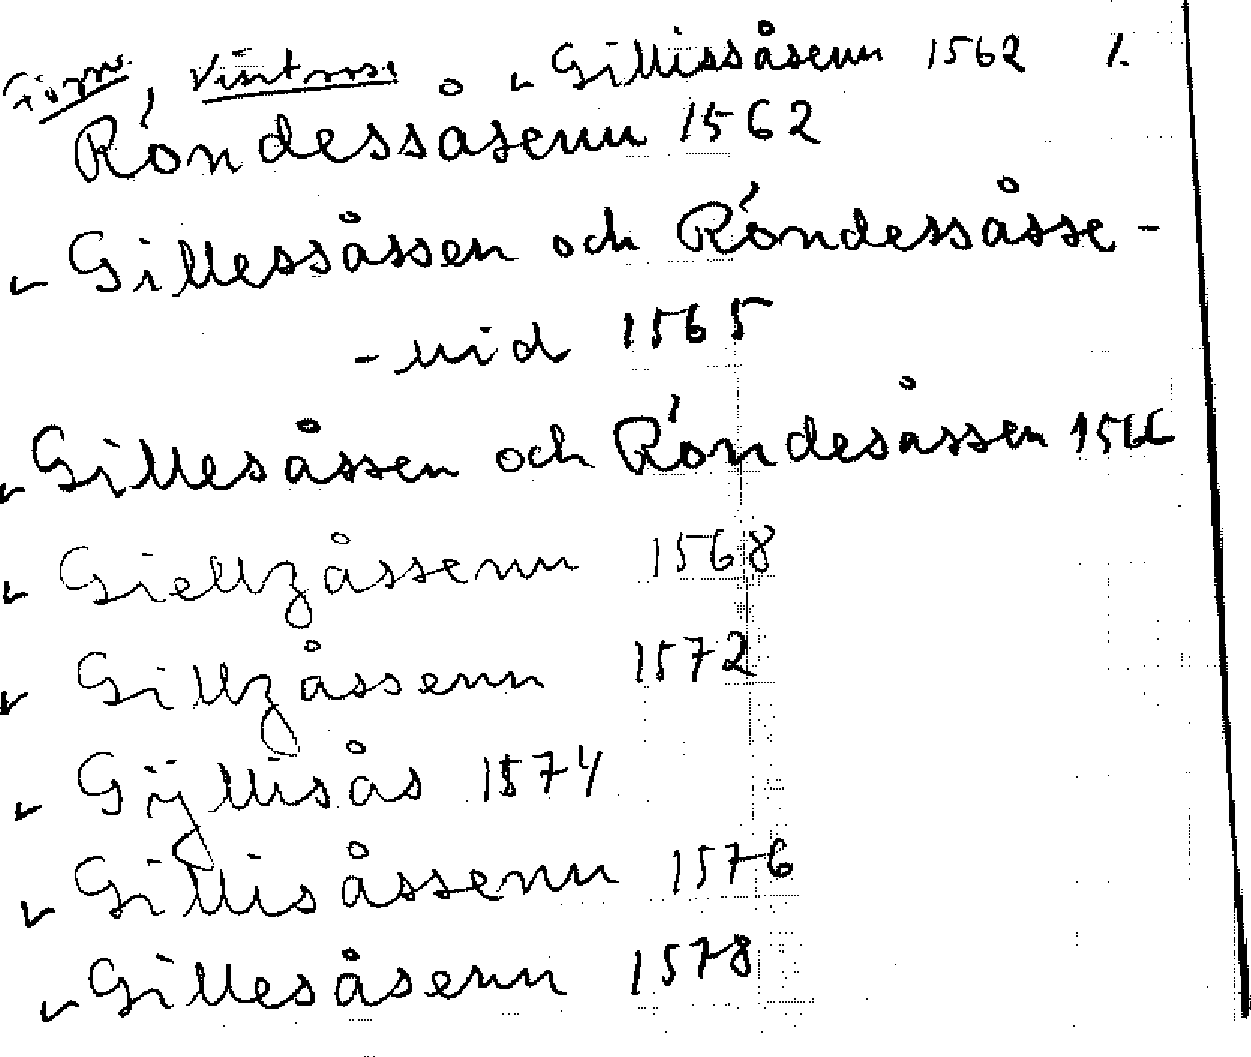 Gillissåsenn 1562 1.
Róndessasenn 1562
Gillessåssen och Róndessåsse-
-nid 1565
Gillesåssen och Róndesåssen 1566
Giellzåssenn 1568
Gillzåssenn 1572
Gÿllisås 1574
Gillisåssenn 1576
Gillesåsenn 1578